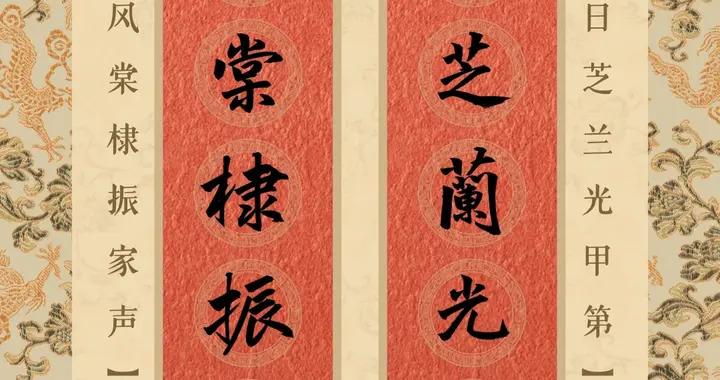 日芝兰光甲第】
芝蘭光
棠棣振
风棠棣振家声】